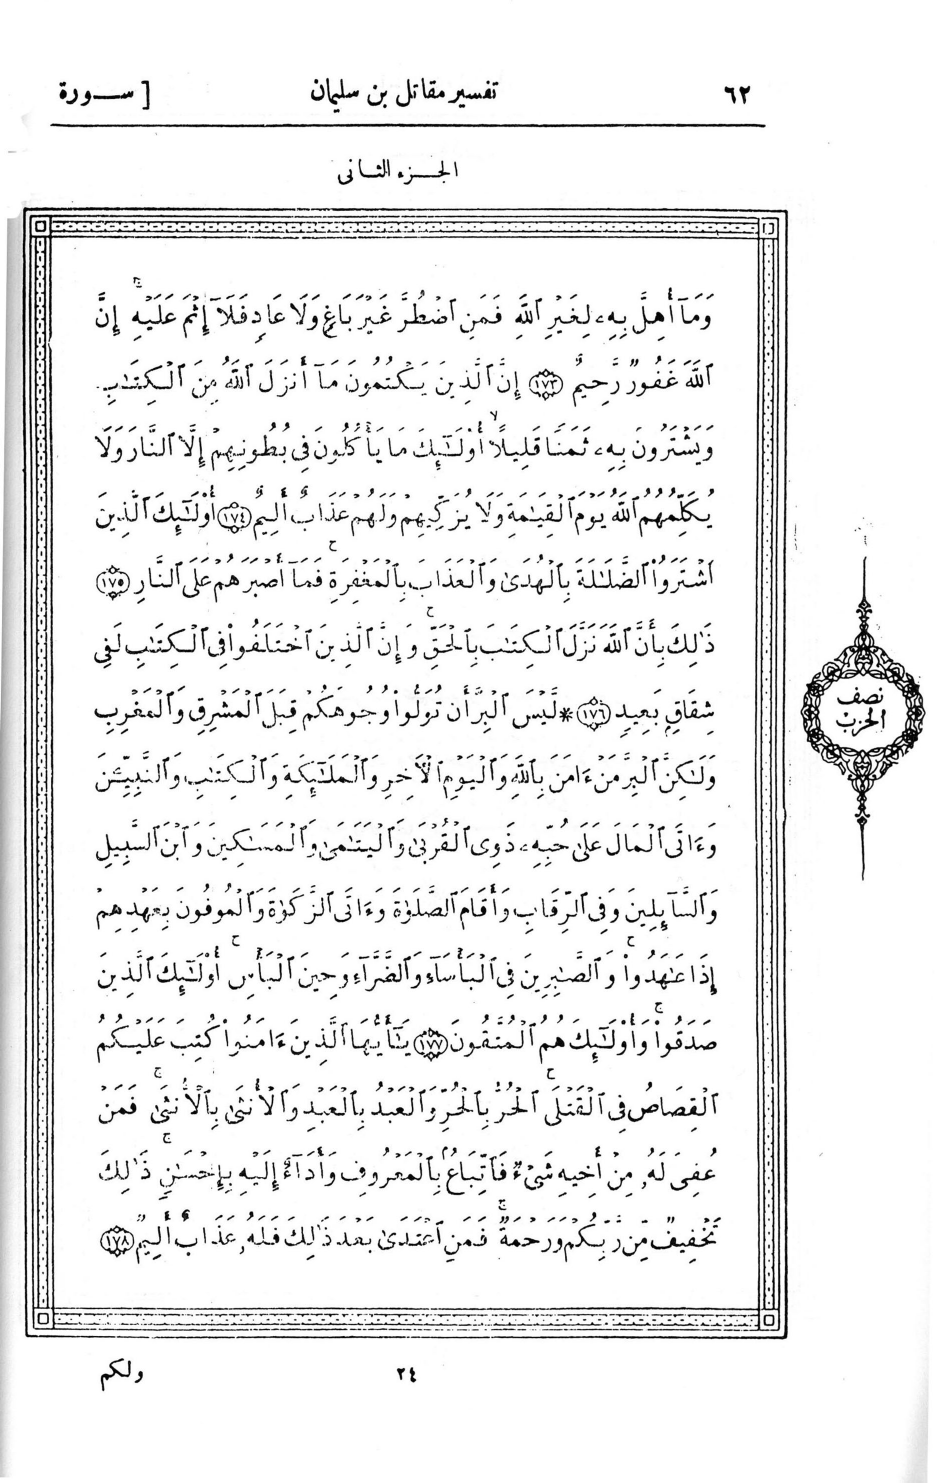 ٦٢ تفسير مقاتل بن سليمان [ ســورة
الجــزء الثانى
وَمَآ أُهِلَّ بِهِۦ لِغَيْرِ ٱللَّهِ فَمَنِ ٱضْطُرَّ غَيْرَ بَاغٍ وَلَا عَادٍ فَلَآ إِثْمَ عَلَيْهِ ۚ إِنَّ
ٱللَّهَ غَفُورٌ رَّحِيمٌ ﴿١٧٣﴾ إِنَّ ٱلَّذِينَ يَكْتُمُونَ مَآ أَنزَلَ ٱللَّهُ مِنَ ٱلْكِتَٰبِ
وَيَشْتَرُونَ بِهِۦ ثَمَنًا قَلِيلًا ۙ أُو۟لَٰٓئِكَ مَا يَأْكُلُونَ فِى بُطُونِهِمْ إِلَّا ٱلنَّارَ وَلَا
يُكَلِّمُهُمُ ٱللَّهُ يَوْمَ ٱلْقِيَٰمَةِ وَلَا يُزَكِّيهِمْ وَلَهُمْ عَذَابٌ أَلِيمٌ ﴿١٧٤﴾ أُو۟لَٰٓئِكَ ٱلَّذِينَ
ٱشْتَرَوُا۟ ٱلضَّلَٰلَةَ بِٱلْهُدَىٰ وَٱلْعَذَابَ بِٱلْمَغْفِرَةِ ۚ فَمَآ أَصْبَرَهُمْ عَلَى ٱلنَّارِ ﴿١٧٥﴾
ذَٰلِكَ بِأَنَّ ٱللَّهَ نَزَّلَ ٱلْكِتَٰبَ بِٱلْحَقِّ ۗ وَإِنَّ ٱلَّذِينَ ٱخْتَلَفُوا۟ فِى ٱلْكِتَٰبِ لَفِى
شِقَاقٍۭ بَعِيدٍ ﴿١٧٦﴾ * لَّيْسَ ٱلْبِرَّ أَن تُوَلُّوا۟ وُجُوهَكُمْ قِبَلَ ٱلْمَشْرِقِ وَٱلْمَغْرِبِ
وَلَٰكِنَّ ٱلْبِرَّ مَنْ ءَامَنَ بِٱللَّهِ وَٱلْيَوْمِ ٱلْأَخِرِ وَٱلْمَلَٰٓئِكَةِ وَٱلْكِتَٰبِ وَٱلنَّبِيِّۦنَ
وَءَاتَى ٱلْمَالَ عَلَىٰ حُبِّهِۦ ذَوِى ٱلْقُرْبَىٰ وَٱلْيَتَٰمَىٰ وَٱلْمَسَٰكِينَ وَٱبْنَ ٱلسَّبِيلِ
وَٱلسَّآئِلِينَ وَفِى ٱلرِّقَابِ وَأَقَامَ ٱلصَّلَوٰةَ وَءَاتَى ٱلزَّكَوٰةَ وَٱلْمُوفُونَ بِعَهْدِهِمْ
إِذَا عَٰهَدُوا۟ ۖ وَٱلصَّٰبِرِينَ فِى ٱلْبَأْسَآءِ وَٱلضَّرَّآءِ وَحِينَ ٱلْبَأْسِ ۗ أُو۟لَٰٓئِكَ ٱلَّذِينَ
صَدَقُوا۟ ۖ وَأُو۟لَٰٓئِكَ هُمُ ٱلْمُتَّقُونَ ﴿١٧٧﴾ يَٰٓأَيُّهَا ٱلَّذِينَ ءَامَنُوا۟ كُتِبَ عَلَيْكُمُ
ٱلْقِصَاصُ فِى ٱلْقَتْلَى ۖ ٱلْحُرُّ بِٱلْحُرِّ وَٱلْعَبْدُ بِٱلْعَبْدِ وَٱلْأُنثَىٰ بِٱلْأُنثَىٰ ۚ فَمَنْ
عُفِىَ لَهُۥ مِنْ أَخِيهِ شَىْءٌ فَٱتِّبَاعٌۢ بِٱلْمَعْرُوفِ وَأَدَآءٌ إِلَيْهِ بِإِحْسَٰنٍ ۗ ذَٰلِكَ
تَخْفِيفٌ مِّن رَّبِّكُمْ وَرَحْمَةٌ ۗ فَمَنِ ٱعْتَدَىٰ بَعْدَ ذَٰلِكَ فَلَهُۥ عَذَابٌ أَلِيمٌ ﴿١٧٨﴾
نصف
الحزب
٢٤ ولكم